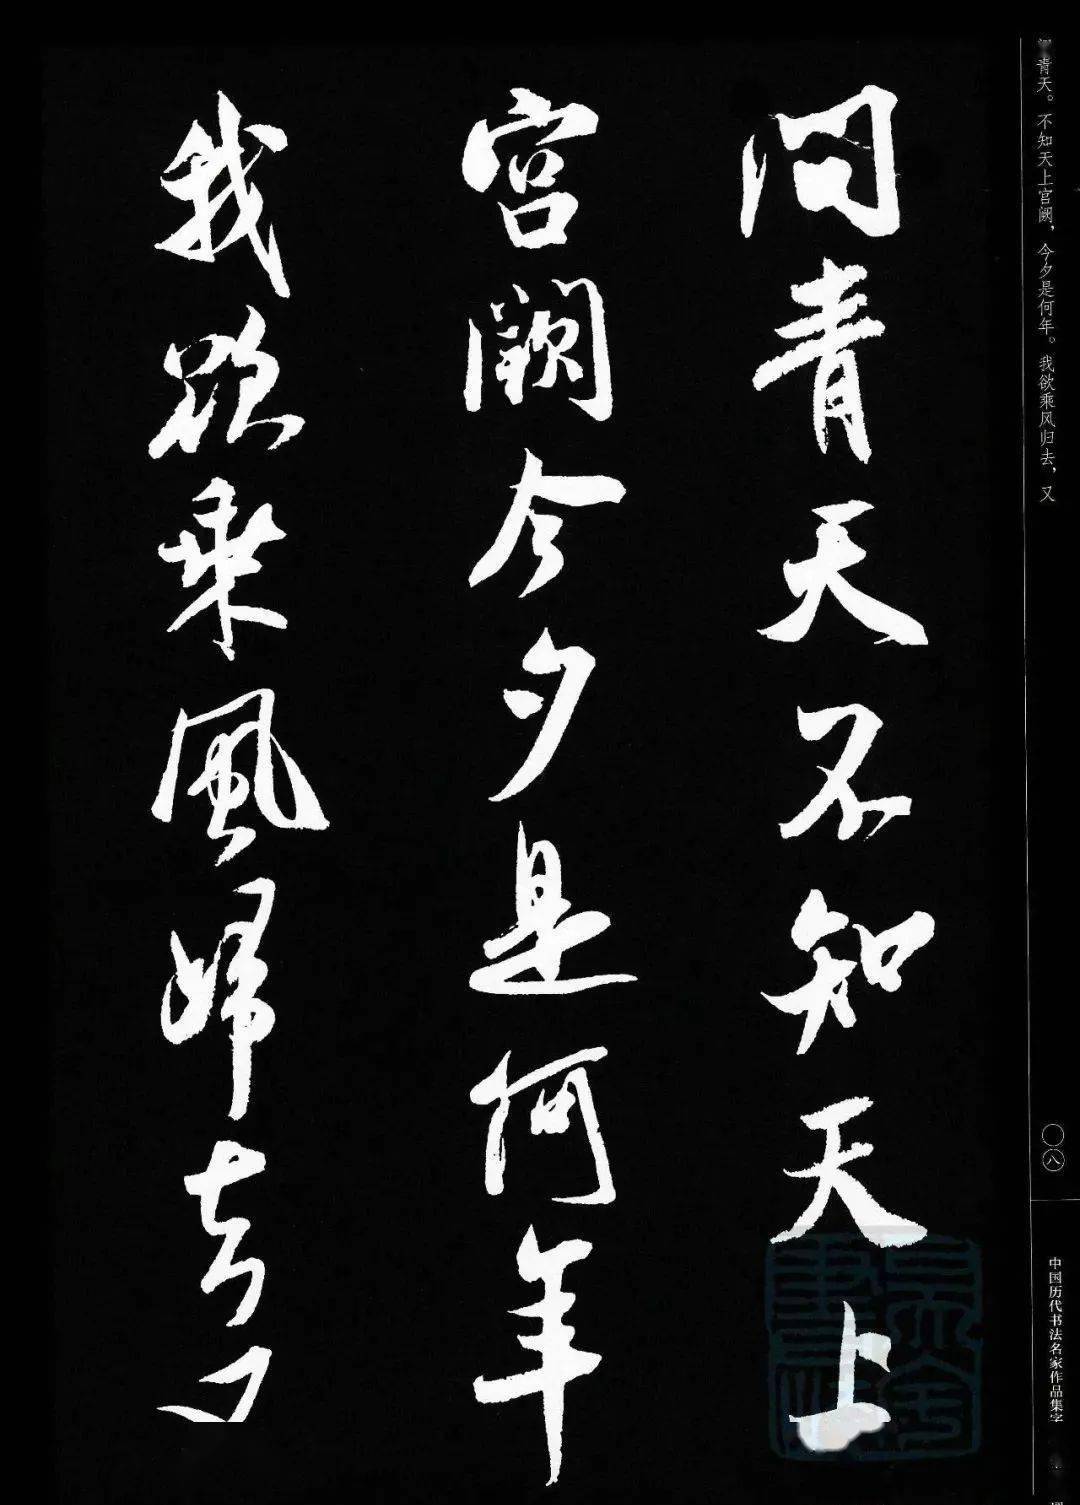 青天。不知天上宫阙，今夕是何年。我欲乘风归去，又
〇八
中国历代书法名家作品集字
問青天不知天上
宫闕今夕是何年
我欲乘風歸去又